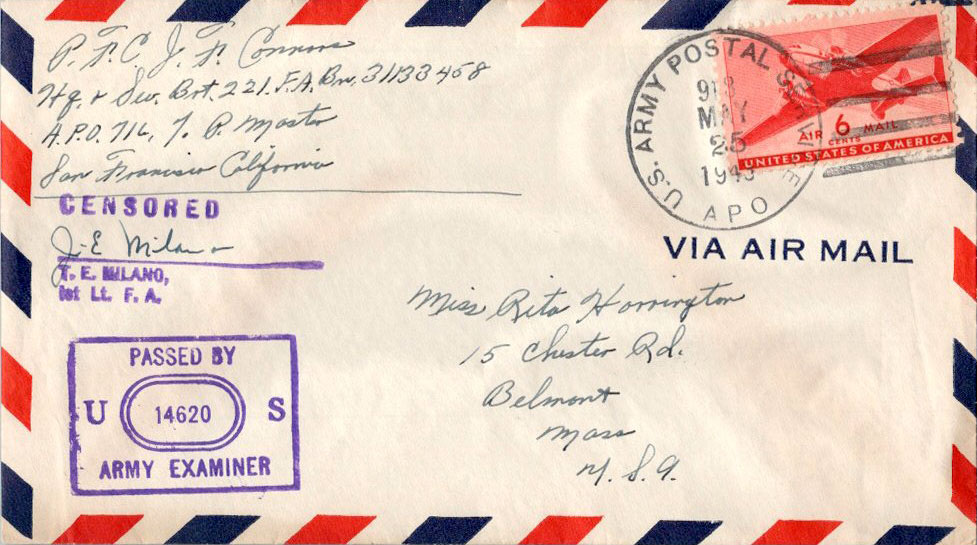 P.F.C. J. F. Connors
Hq. & Sev. Bat. 221. F.A. Bn, 31133458
A.P.O. 716, % P. Master
San Francisco California
CENSORED
J. E. Milano
T. E. MILANO,
1st Lt. F. A.
PASSED BY
U 14620 S
ARMY EXAMINER
U.S. ARMY POSTAL SERVICE
MAY
25
1943
APO
AIR 6 MAIL
CENTS
UNITED STATES OF AMERICA
VIA AIR MAIL
Miss Rita Horrington
15 Chester Rd.
Belmont
Mass
U.S.A.